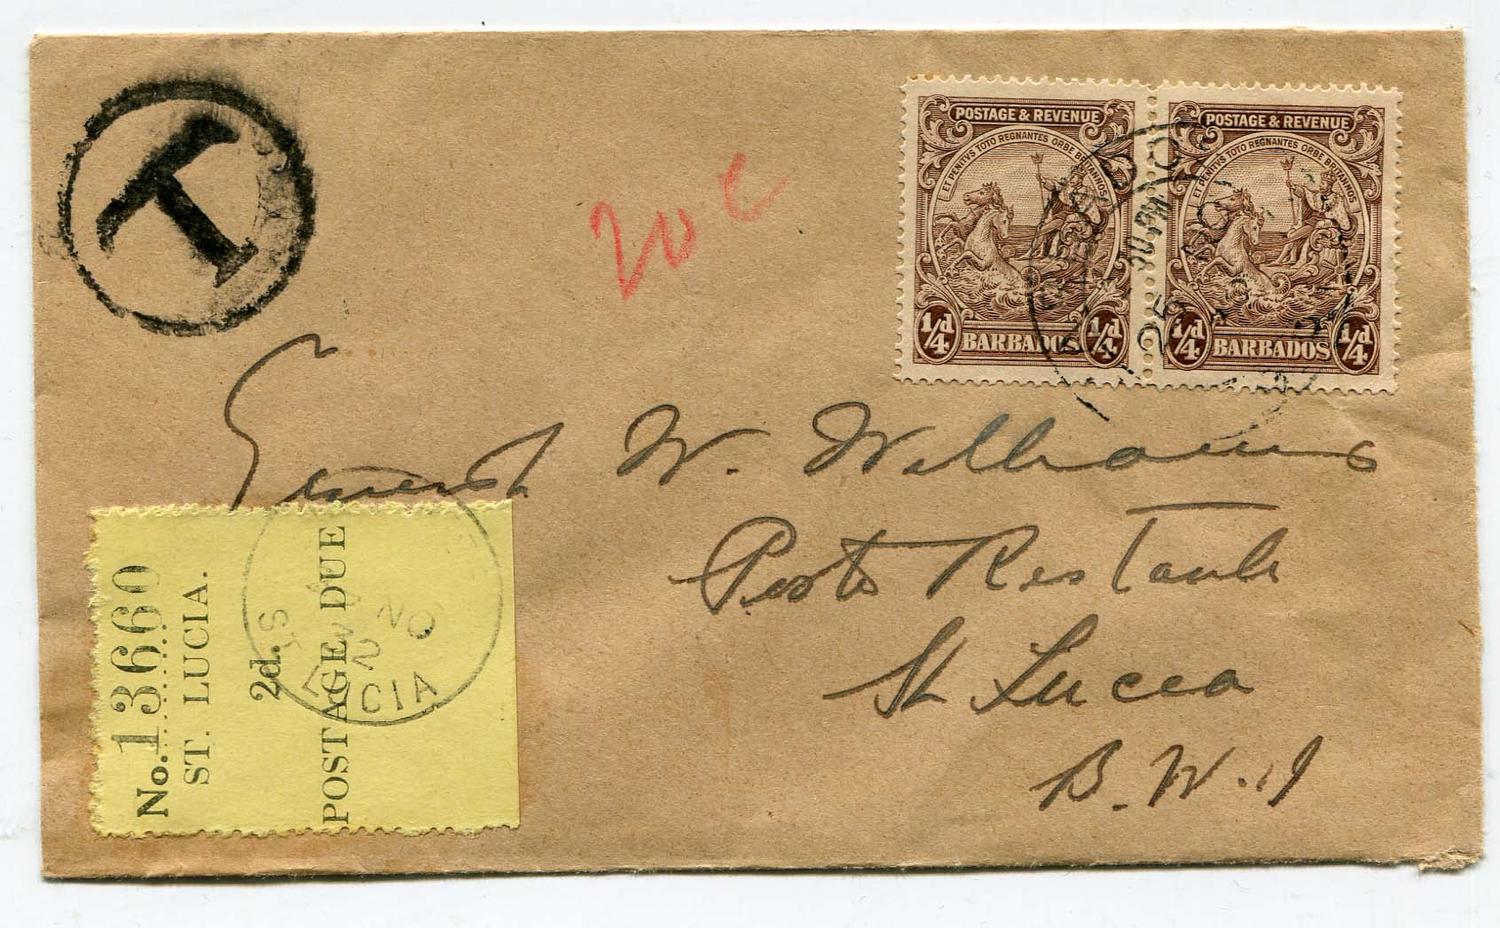 T
20 c
POSTAGE & REVENUE
ET PENITVS TOTO REGNANTES ORBE BRITANNOS
¼d ¼d
BARBADOS
POSTAGE & REVENUE
ET PENITVS TOTO REGNANTES ORBE BRITANNOS
¼d ¼d
BARBADOS
30 PM
25
Ernest W. Williams
Poste Restante
St Lucia
B.W.I
No. 13660
ST. LUCIA.
2d.
POSTAGE DUE
ST
NO
2
CIA